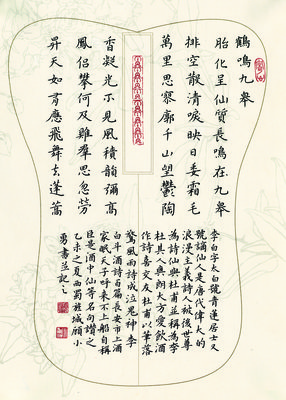 鶴鳴九皋
胎化呈仙質長鳴在九皋
排空散清唳映日委霜毛
萬里思寥廓千山望鬱陶
香凝光不見風積韻彌高
鳳侶攀何及雞羣思忽勞
昇天如有應飛舞出蓬蒿
李白字太白號青蓮居士又
號謫仙人是唐代偉大的
浪漫主義詩人被後世尊
為詩仙與杜甫並稱為李
杜其人爽朗大方愛飲酒
作詩喜交友杜甫以筆落
驚風雨詩成泣鬼神李
白斗酒詩百篇長安市上酒
家眠天子呼來不上船自稱
臣是酒中仙等名句讚之
乙未之夏西蜀旌城顧小
勇書並記之